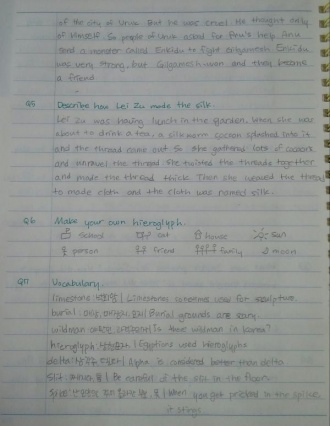 of the city of Uruk. But he was cruel. He thought only
of himself. So people of Uruk asked for Anu's help. Anu
send a monster called Enkidu to fight Gilgamesh. Enkidu
was very strong, but Gilgamesh won and they became
a friend.
Q5 Describe how Lei Zu made the silk.
Lei Zu was having lunch in the garden. When she was
about to drink a tea, a silkworm cocoon splashed into it
and the thread came out. So she gathered lots of cocoons
and unravel the thread. She twisted the threads together
and made the thread thick. Then she weaved the thread
to made cloth and the cloth was named silk.
Q6 Make your own hieroglyph.
school cat house sun
person friend family moon
Q7 Vocabulary.
limestone 석회암 | Limestones sometimes used for sculpture.
burial | Burial grounds are scary.
wildman | Is there wildman in Korea?
hieroglyph | Egyptians used hieroglyphs
delta | Alpha is considered better than delta
| Be careful of the on the floor.
| When you get pricked in the spikes,
→ stings